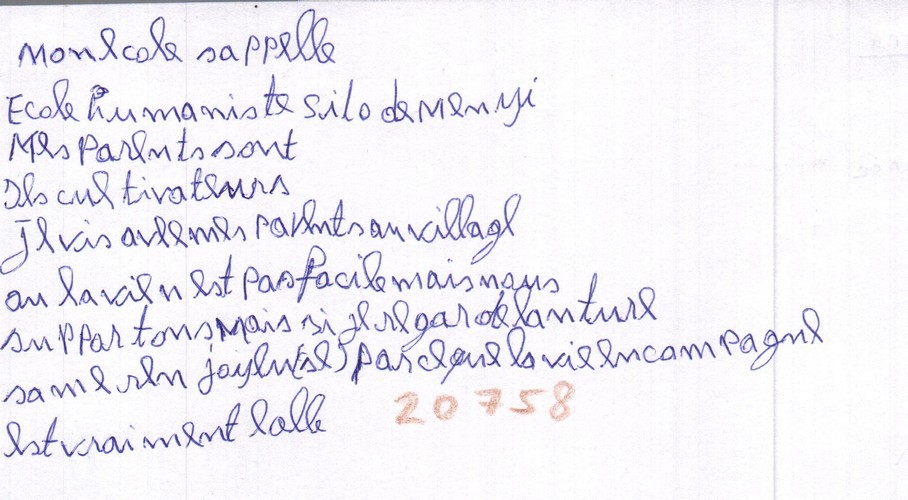 Mon ecole sappelle
Ecole humaniste silo de Menyi
Mes parents sont
des cultivateurs
Je vis avec mes parents au village
ou la vie n est pas facile mais nous
supportons mais si je regarde lanture
sa me ren joyeu(se) parceque la vie en campagne
est vraiment balle
20758